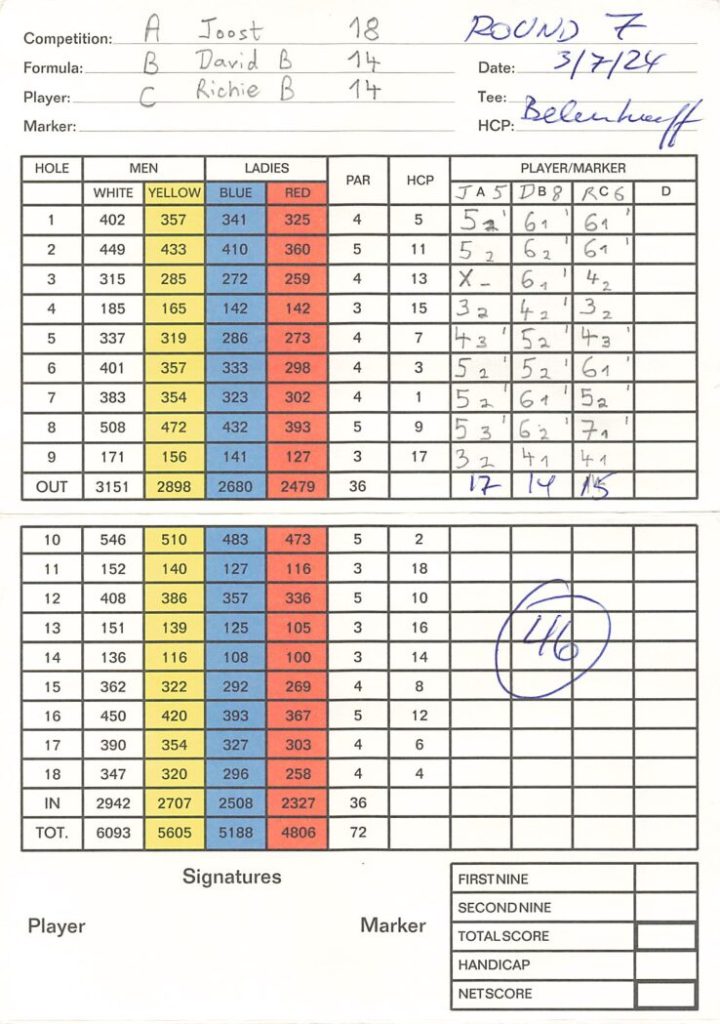 Competition: A Joost 18 ROUND 7
Formula: B David B 14 Date: 3/7/24
Player: C Richie B 14 Tee:
Marker: HCP:
HOLE MEN LADIES PAR HCP PLAYER/MARKER
WHITE YELLOW BLUE RED J A 5 D B 8 R C 6 D
1 402 357 341 325 4 5 5 2 ' 6 1 ' 6 1 '
2 449 433 410 360 5 11 5 2 6 2 ' 6 1 '
3 315 285 272 259 4 13 X – 6 1 ' 4 2
4 185 165 142 142 3 15 3 2 4 2 ' 3 2
5 337 319 286 273 4 7 4 3 ' 5 2 ' 4 3 '
6 401 357 333 298 4 3 5 2 ' 5 2 ' 6 1 '
7 383 354 323 302 4 1 5 2 ' 6 1 ' 5 2 '
8 508 472 432 393 5 9 5 3 ' 6 2 ' 7 1 '
9 171 156 141 127 3 17 3 2 4 1 4 1
OUT 3151 2898 2680 2479 36 17 14 15
10 546 510 483 473 5 2
11 152 140 127 116 3 18
12 408 386 357 336 5 10
13 151 139 125 105 3 16
46
14 136 116 108 100 3 14
15 362 322 292 269 4 8
16 450 420 393 367 5 12
17 390 354 327 303 4 6
18 347 320 296 258 4 4
IN 2942 2707 2508 2327 36
TOT. 6093 5605 5188 4806 72
Signatures
Player Marker
FIRST NINE
SECOND NINE
TOTAL SCORE
HANDICAP
NET SCORE